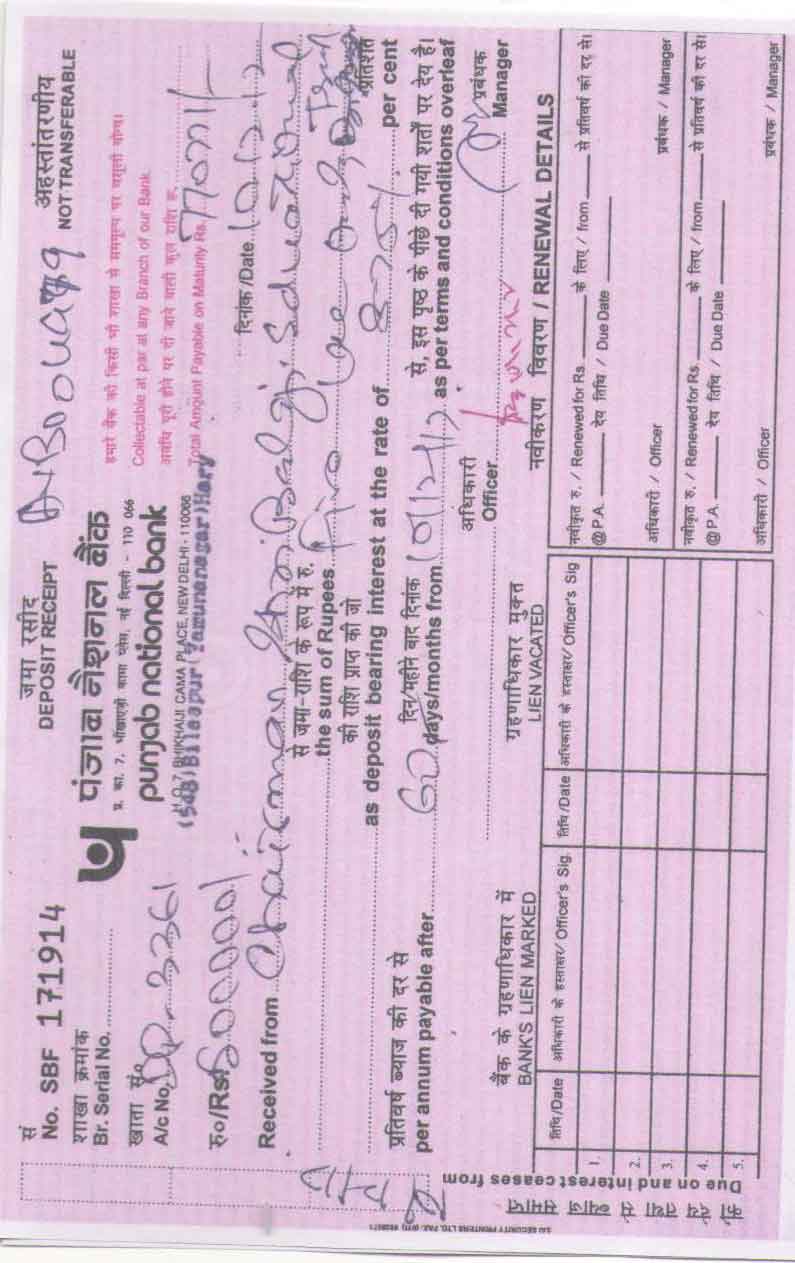 सं
No. SBF 171914
जमा रसीद
DEPOSIT RECEIPT
अहस्तांतरणीय
NOT TRANSFERABLE
शाखा क्रमांक
Br. Serial No.
पंजाब नैशनल बैंक
प्र. का. 7, भीखाएजी कामा प्लेस, नई दिल्ली - 110 066
punjab national bank
H.O. 7 BHIKHAIJI CAMA PLACE, NEW DELHI - 110066
(548) Bilaspur (Yamunanagar) Hary
हमारे बैंक की किसी भी शाखा से सममूल्य पर वसूली योग्य।
Collectable at par at any Branch of our Bank
अवधि पूरी होने पर दी जाने वाली कुल राशि रू.
Total Amount Payable on Maturity Rs. 770711/-
खाता सं०
A/c No. DD-3361
रु०/Rs. 500000/
दिनांक /Date
Received from Chairman Educational
से जमा-राशि के रूप में रु.
the sum of Rupees Five Lac only
की राशि प्राप्त की जो
as deposit bearing interest at the rate of 8.75% प्रतिशत per cent
प्रतिवर्ष ब्याज की दर से
per annum payable after 60 दिन/महीने बाद दिनांक days/months from से, इस पृष्ठ के पीछे दी गयी शर्तों पर देय है।
as per terms and conditions overleaf
अधिकारी
Officer
प्रबंधक
Manager
बैंक के ग्रहणाधिकार में
BANK'S LIEN MARKED
ग्रहणाधिकार मुक्त
LIEN VACATED
नवीकरण विवरण / RENEWAL DETAILS
तिथि/Date
अधिकारी के हस्ताक्षर/ Officer's Sig.
तिथि /Date
अधिकारी के हस्ताक्षर/ Officer's Sig
1.
2.
3.
4.
5.
नवीकृत रु. / Renewed for Rs. के लिए / from से प्रतिवर्ष की दर से।
@ P.A. देय तिथि / Due Date
अधिकारी / Officer
प्रबंधक / Manager
नवीकृत रु. / Renewed for Rs. के लिए / from से प्रतिवर्ष की दर से।
@ P.A. देय तिथि / Due Date
अधिकारी / Officer
प्रबंधक / Manager
Due on and interest ceases from